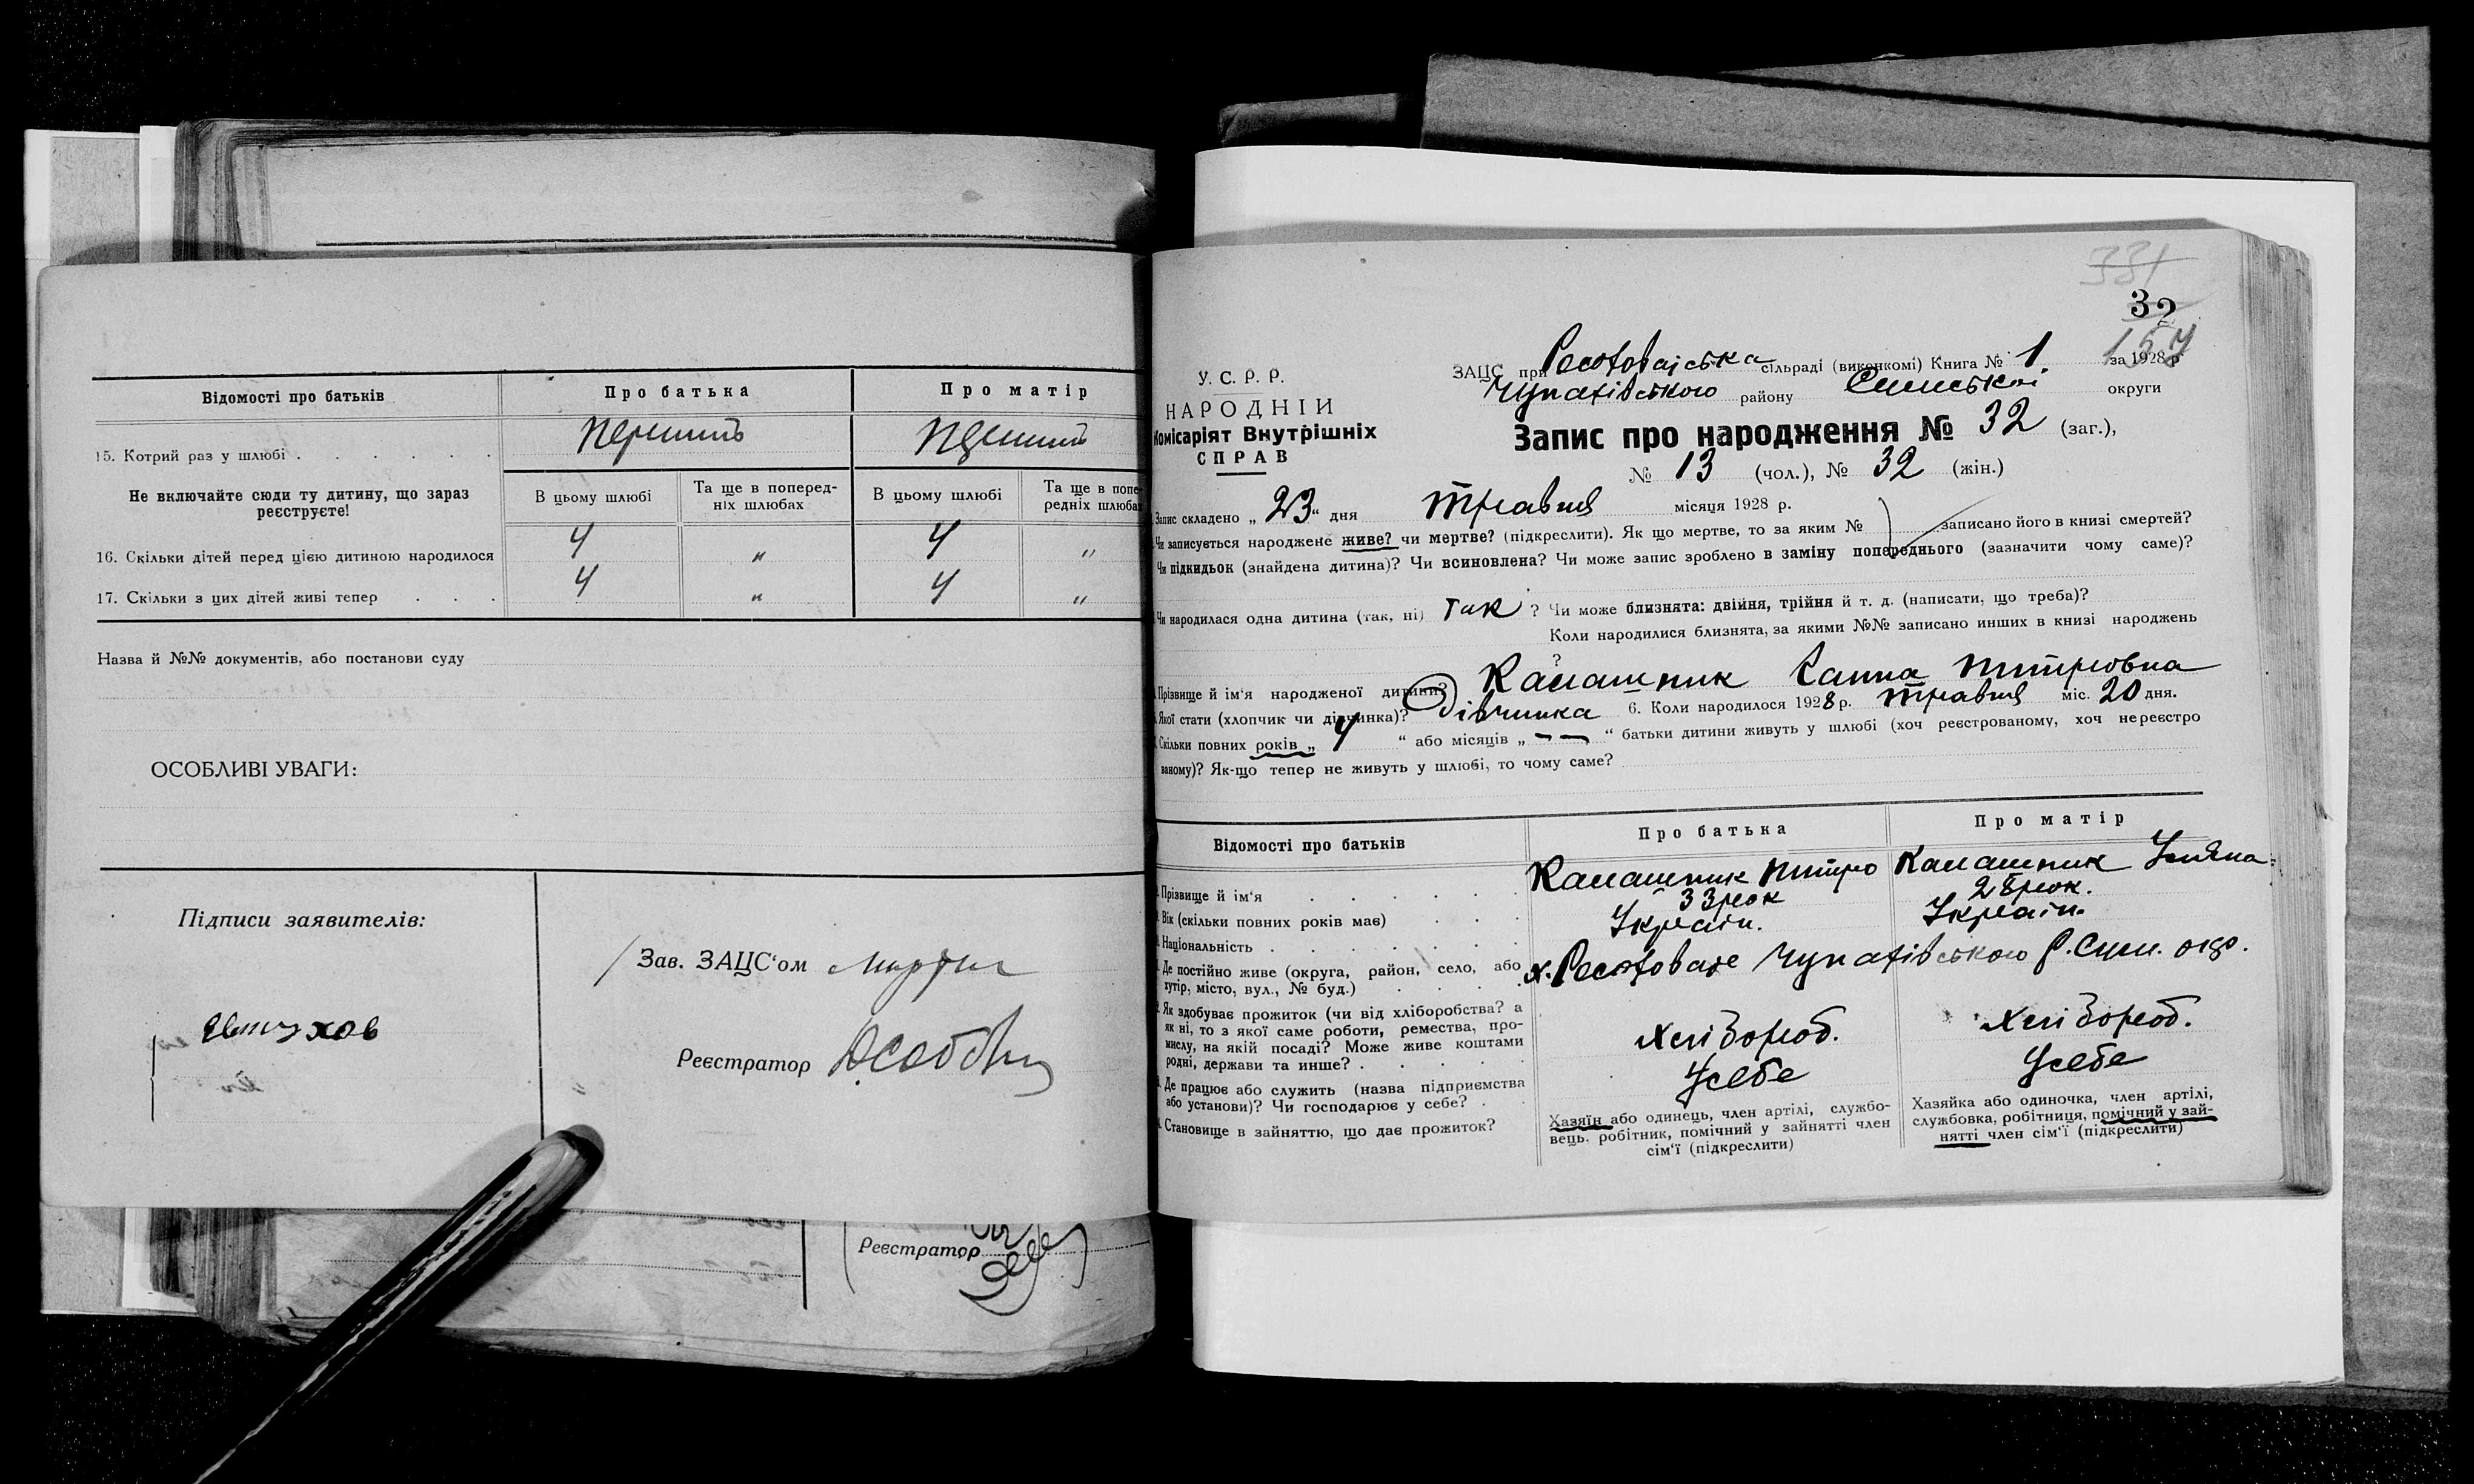 Відомості про батьків
Про батька
Про матір
15. Котрий раз у шлюбі . . . . . .
Не включайте сюди ту дитину, що зараз
реєструєте!
В цьому шлюбі
Та ще в поперед-
ніх шлюбах
В цьому шлюбі
Та ще в попе-
редніх шлюбах
16. Скільки дітей перед цією дитиною народилося 4 " 4 "
17. Скільки з цих дітей живі тепер . . . 4 " 4 "
Назва й №№ документів, або постанови суду
ОСОБЛИВІ УВАГИ:
Підписи заявителів:
Зав. ЗАЦС'ом
Реєстратор
Реєстратор
331
32
157
У. С. Р. Р.
НАРОДНІЙ
Комісаріят Внутрішніх
СПРАВ
ЗАЦС при сільраді (виконкомі) Книга № 1 за 1928 р
Чупахівського району Сумської округи
Запис про народження № 32 (заг.),
№ 13 (чол.), № 32 (жін.)
Запис складено „ 23 “ дня травня місяця 1928 р.
Чи записується народжене живе? чи мертве? (підкреслити). Як що мертве, то за яким № записано його в книзі смертей?
Чи підкидьок (знайдена дитина)? Чи всиновлена? Чи може запис зроблено в заміну попереднього (зазначити чому саме)?
Чи народилася одна дитина (так, ні) так ? Чи може близнята: двійня, трійня й т. д. (написати, що треба)?
Коли народилися близнята, за якими №№ записано инших в книзі народжень
?
Прізвище й ім'я народженої дитини? Калашник Ганна Питровна
Якої стати (хлопчик чи дівчинка)? Дівчинка 6. Коли народилося 1928 р. травня міс. 20 дня.
Скільки повних років „ 4 “ або місяців „ — — “ батьки дитини живуть у шлюбі (хоч реєстрованому, хоч нереєстро
ваному)? Як-що тепер не живуть у шлюбі, то чому саме?
Відомості про батьків
Про батька
Про матір
Прізвище й ім'я . . . . Калашник Питро Калашник Уляна
Вік (скільки повних років має) . . . 33 рок 28 рок.
Національність . . . . . . Україн. Україн.
Де постійно живе (округа, район, село, або
хутір, місто, вул., № буд.) . . . .
х. Чупахівського Р. Сум. окр.
Як здобуває прожиток (чи від хліборобства? а
як ні, то з якої саме роботи, ремества, про-
мислу, на якій посаді? Може живе коштами
родні, держави та инше? . . . .
Хлібороб. Хлібороб.
Де працює або служить (назва підприємства
або установи)? Чи господарює у себе? . .
У себе У себе
Становище в зайняттю, що дає прожиток?
Хазяїн або одинець, член артілі, службо-
вець. робітник, помічний у зайнятті член
сім'ї (підкреслити)
Хазяйка або одиночка, член артілі,
службовка, робітниця, помічний у зай-
нятті член сім'ї (підкреслити)